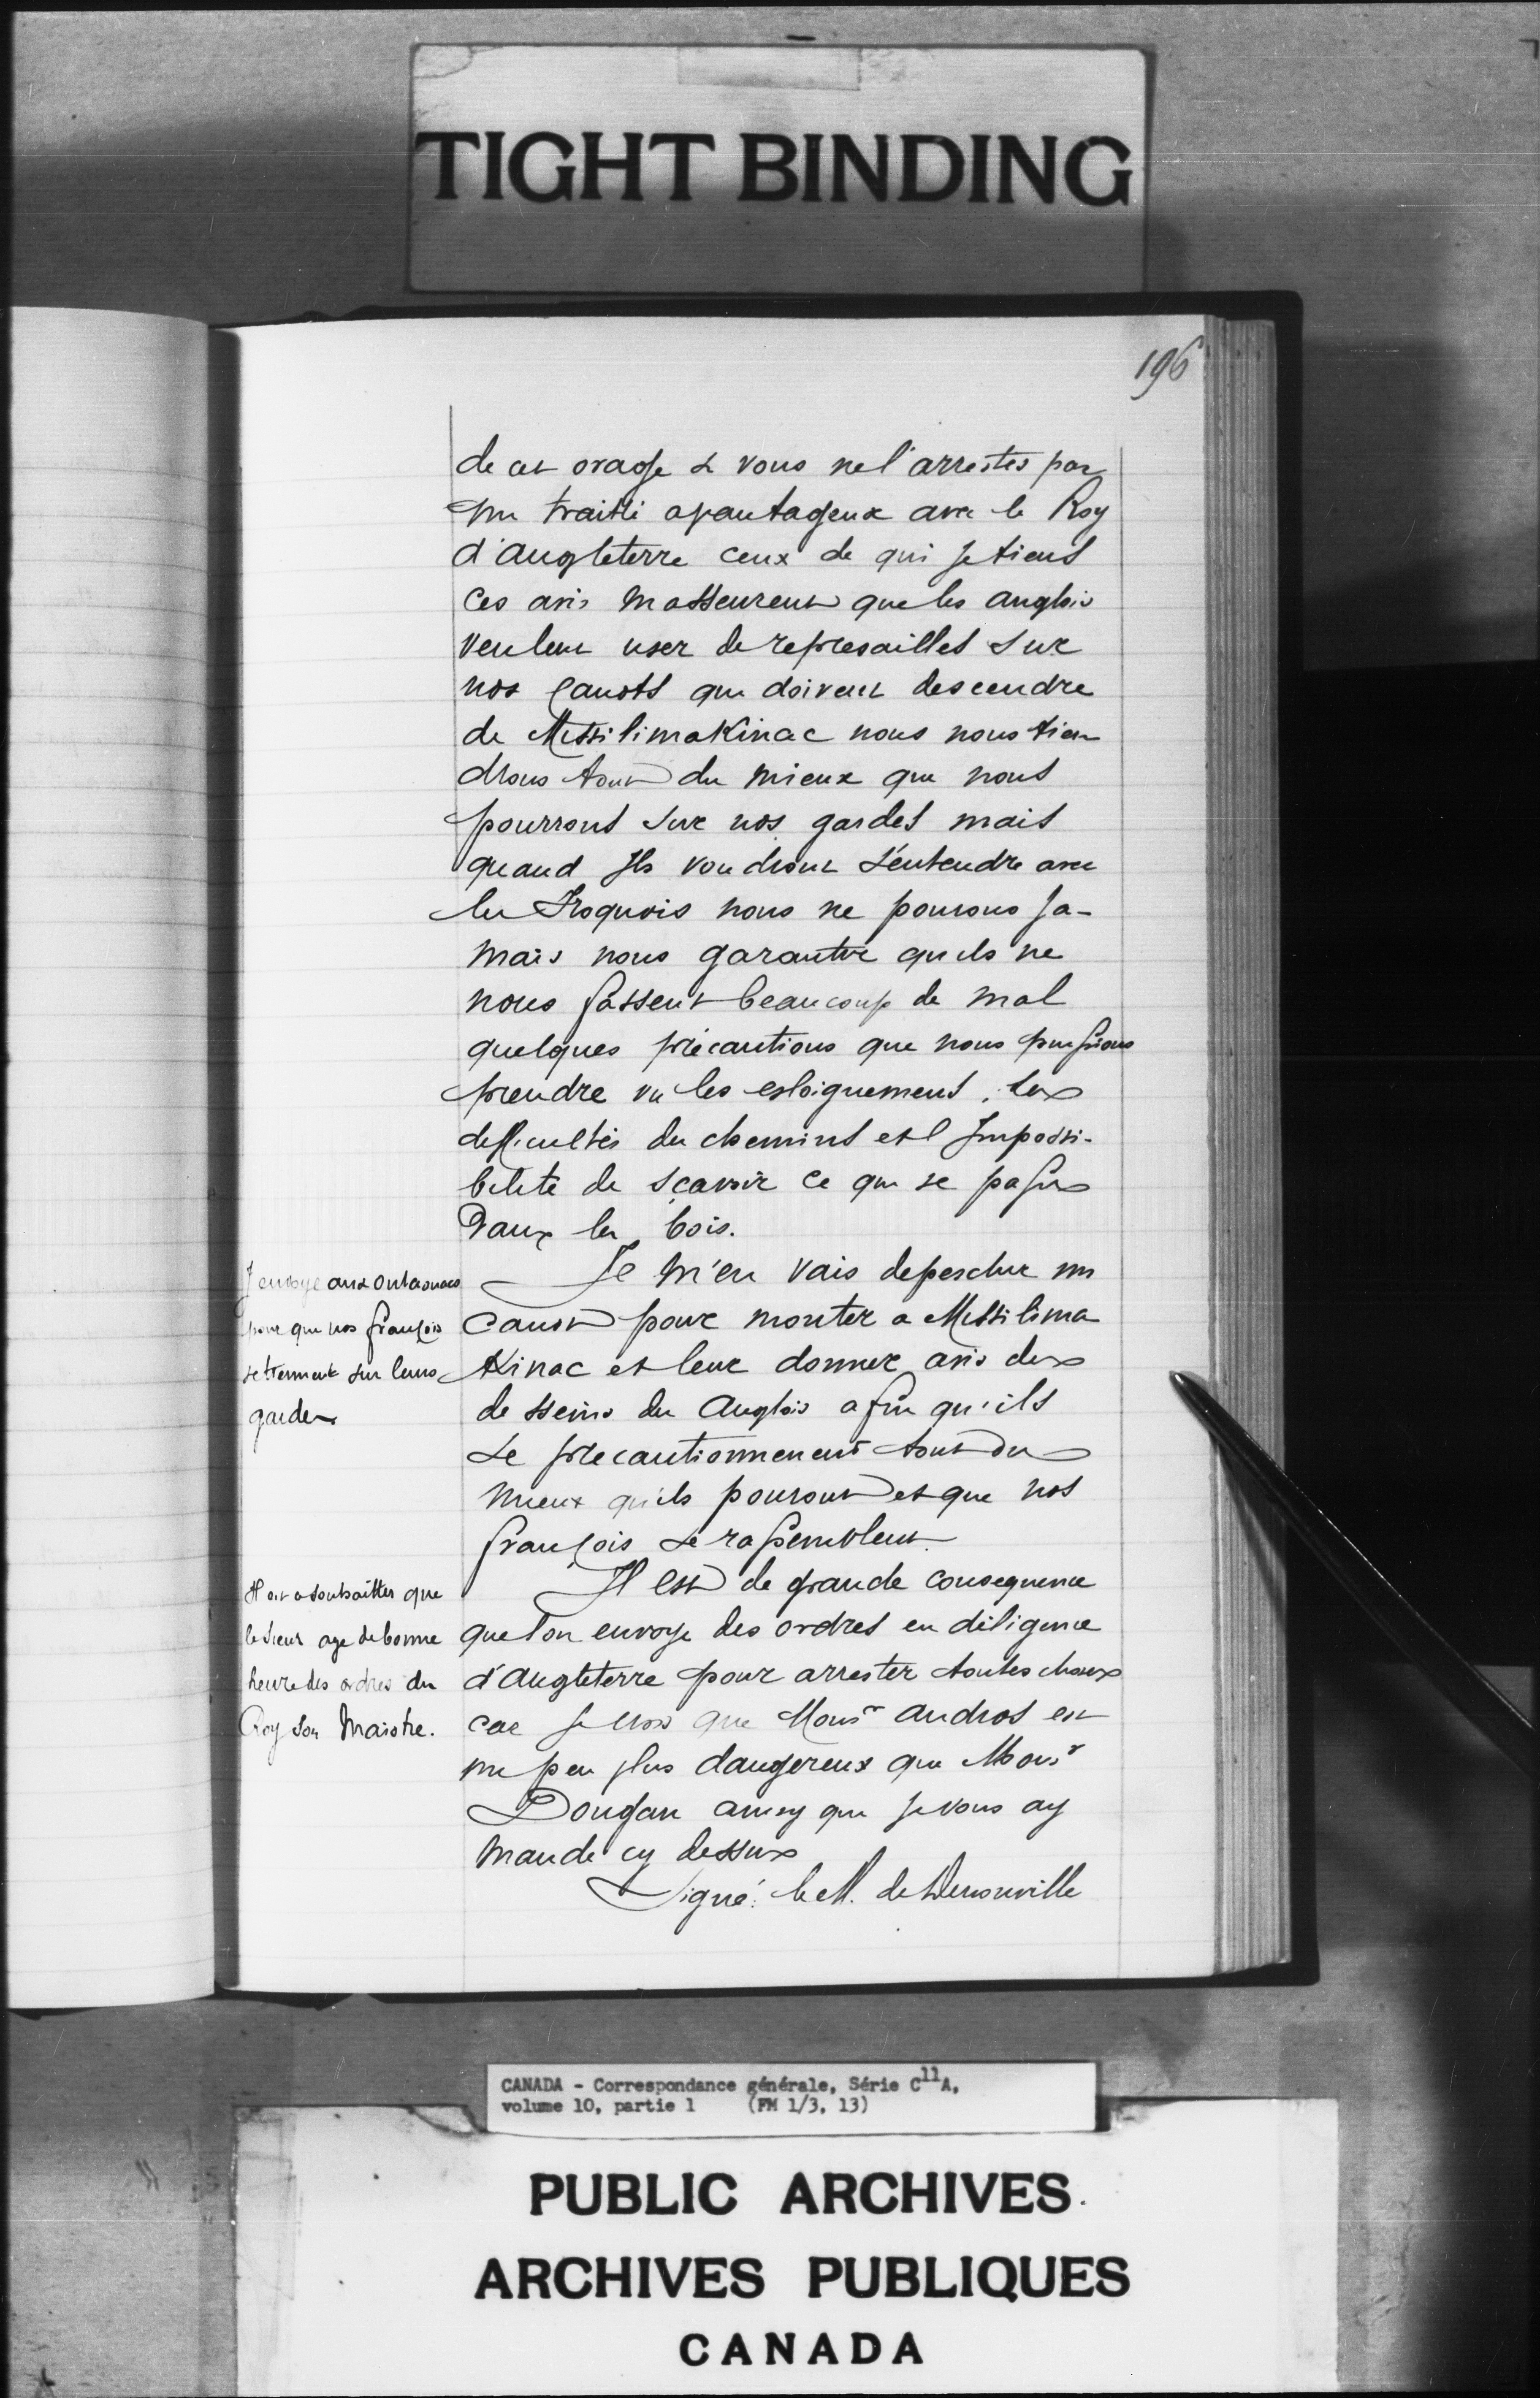 TIGHT BINDING
196
de cet orage si vous ne l'arrestés par
un traitté avantageux avec le Roy
d'angleterre ceux de qui Je tiens
ces avis m'asseurent que les anglois
veulent user de represailles sur
nos Canots qui doivent descendre
de Missilimakinac nous nous tien
drons tout du mieux que nous
pourrons sur nos gardes mais
quand Ils voudront s'entendre avec
les Iroquois nous ne pourons Ja-
mais nous garantir quils ne
nous fassent beaucoup de mal
quelques précautions que nous puissions
prendre vu les esloignemens, les
difficultés du chemins et l Impossi-
bilité de sçavoir ce qui se passe
Dans les bois.
J envoye aux outaouacs
pour que nos françois
se tiennent sur leurs
gardes
Je m'en vais depescher un
Canot pour monter a Missilima
Kinac et leur donner avis des
desseins des Anglois afin qu'ils
se precautionnenent tout du
mieux qu'ils pouront et que nos
françois se rassemblent.
Il est a souhaitter que
le sieur aye de bonne
heure des ordres du
Roy son Maistre.
Il est de grande consequence
que l'on envoye des ordres en diligence
d'Angleterre pour arrester toutes choses
car Je crois que Monsr Andros est
un peu plus dangereux que Monsr
Dongan ainsy que Je vous ay
mandé cy dessus
Signé: le M. de Denonville
CANADA - Correspondance générale, Série C11A,
volume 10, partie 1 (FM 1/3, 13)
PUBLIC ARCHIVES
ARCHIVES PUBLIQUES
CANADA